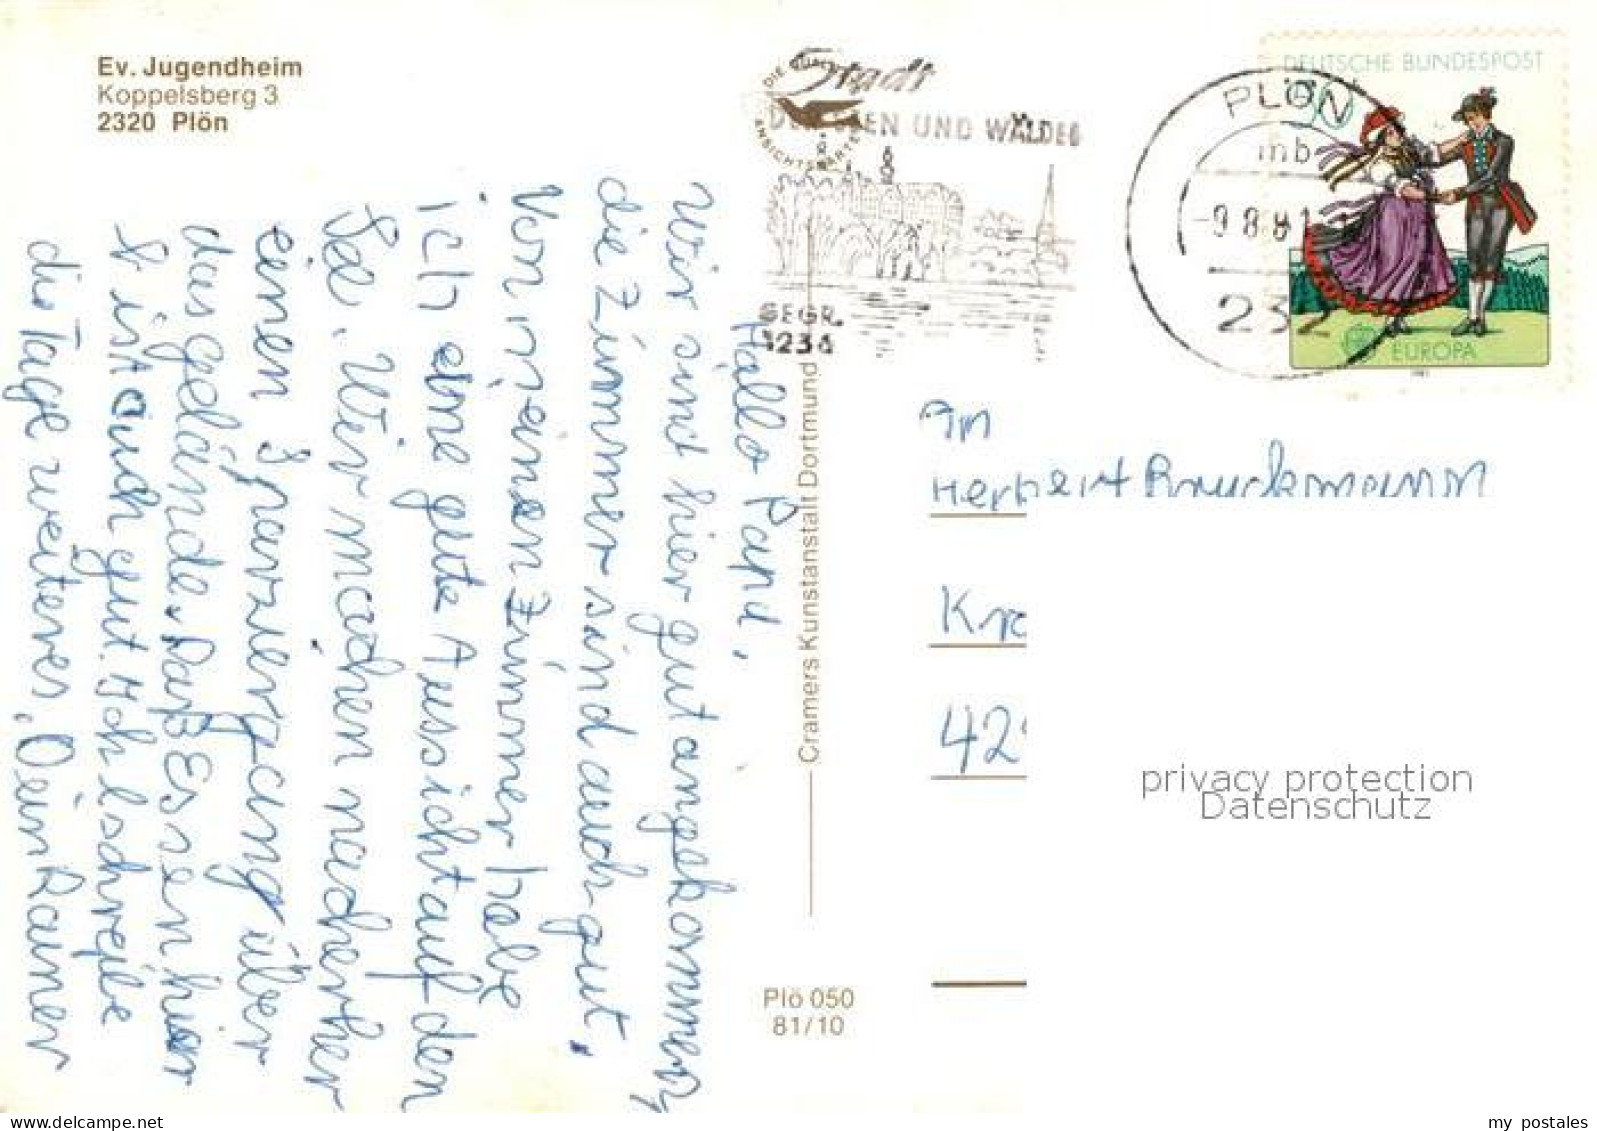 Ev. Jugendheim
Koppelsberg 3
2320 Plön
Stadt
UND WÄLDER
GEGR.
1236
ANSICHTSKARTE
PLÖN
mb
-9.8.81
232
DEUTSCHE BUNDESPOST
EUROPA
Hallo Papa,
Wir sind hier gut angekommen
die Zimmer sind auch gut,
Von meinen Zimmer habe
ich eine gute Aussicht auf den
See. Wir machen nacher
einen Spaziergang über
das gelände. Daß Essen hier
ist auch gut. Ich schreibe
die Tage weiter. Dein Rainer
Cramers Kunstanstalt Dortmund
Plö 050
81/10
An
Herbert Bruckmann
42
privacy protection
Datenschutz
my postales